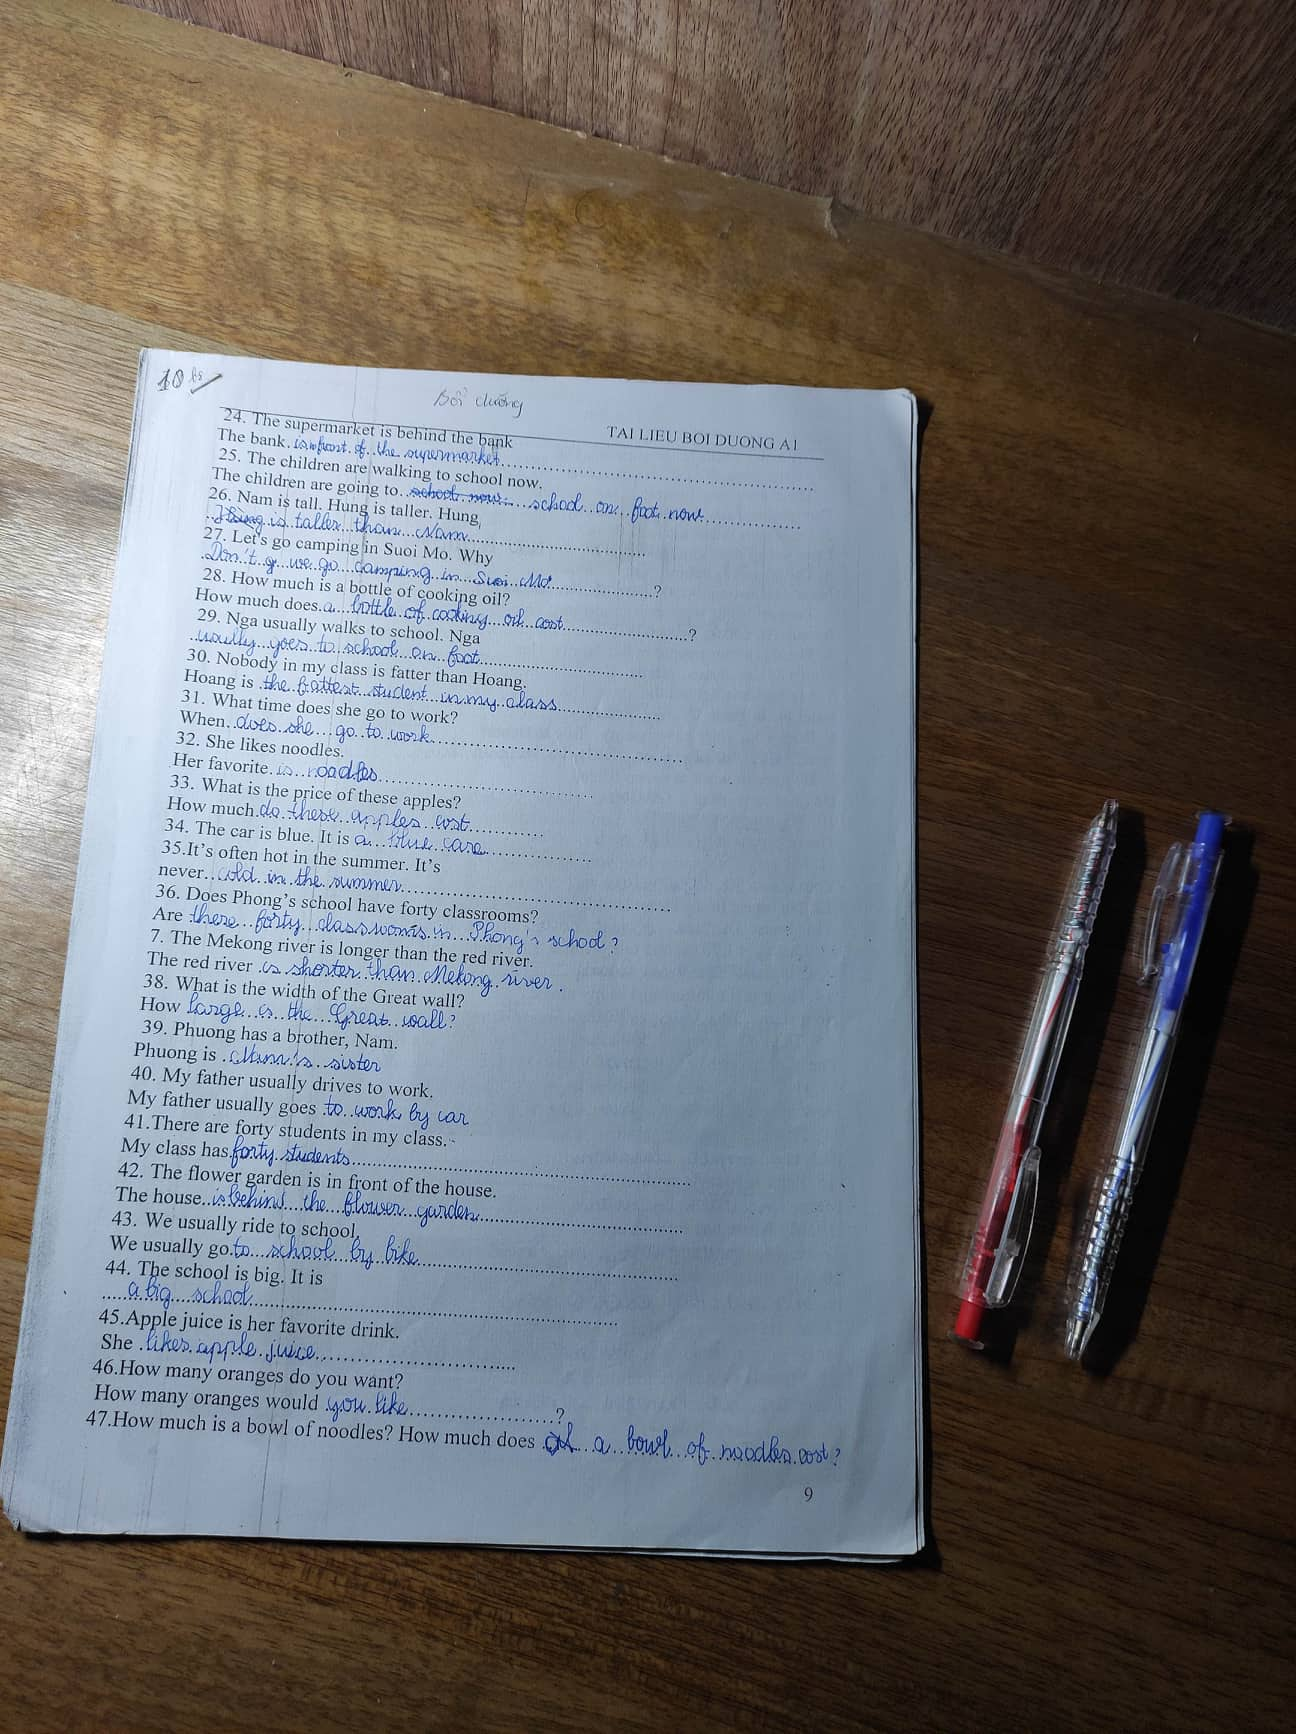 10 hs
Bồi dưỡng
TAI LIEU BOI DUONG A1
24. The supermarket is behind the bank
The bank. is in front of the supermarket
25. The children are walking to school now.
The children are going to school now school on foot now
26. Nam is tall. Hung is taller. Hung
Hung is taller than Nam
27. Let's go camping in Suoi Mo. Why
Don't g we go camping in Suoi Mơ ?
28. How much is a bottle of cooking oil?
How much does a bottle of cooking oil cost ?
29. Nga usually walks to school. Nga
usually goes to school on foot
30. Nobody in my class is fatter than Hoang.
Hoang is the fattest student in my class
31. What time does she go to work?
When does she go to work
32. She likes noodles.
Her favorite is noodles
33. What is the price of these apples?
How much do these apples cost
34. The car is blue. It is a blue care
35.It's often hot in the summer. It's
never cold in the summer
36. Does Phong's school have forty classrooms?
Are there forty classrooms in Phong's school?
7. The Mekong river is longer than the red river.
The red river is shorter than Mekong river.
38. What is the width of the Great wall?
How large is the Great wall?
39. Phuong has a brother, Nam.
Phuong is Nam's sister
40. My father usually drives to work.
My father usually goes to work by car
41.There are forty students in my class.
My class has forty students
42. The flower garden is in front of the house.
The house is behind the flower garden
43. We usually ride to school.
We usually go to school by bike
44. The school is big. It is
a big school
45.Apple juice is her favorite drink.
She likes apple juice
46.How many oranges do you want?
How many oranges would you like ?
47.How much is a bowl of noodles? How much does a bowl of noodles cost?
9